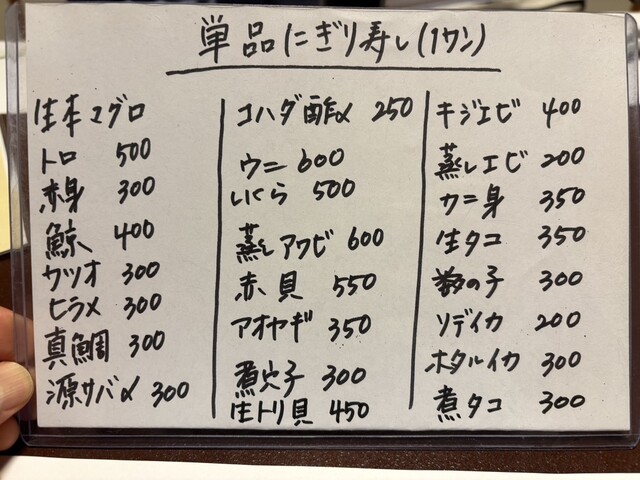 単品にぎり寿し(1カン)
生本マグロ
トロ 500
赤身 300
鯨 400
カツオ 300
ヒラメ 300
真鯛 300
サバ〆 300
コハダ酢〆 250
ウニ 600
いくら 500
蒸しアワビ 600
赤貝 550
アオヤギ 350
煮穴子 300
生トリ貝 450
キジエビ 400
蒸しエビ 200
カニ身 350
生タコ 350
数の子 300
ソデイカ 200
ホタルイカ 300
煮タコ 300